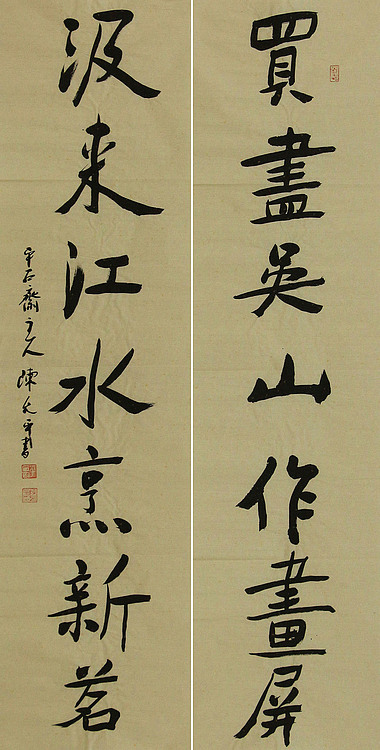 買盡吳山作畫屏
汲来江水烹新茗
平石齋主人陳平書